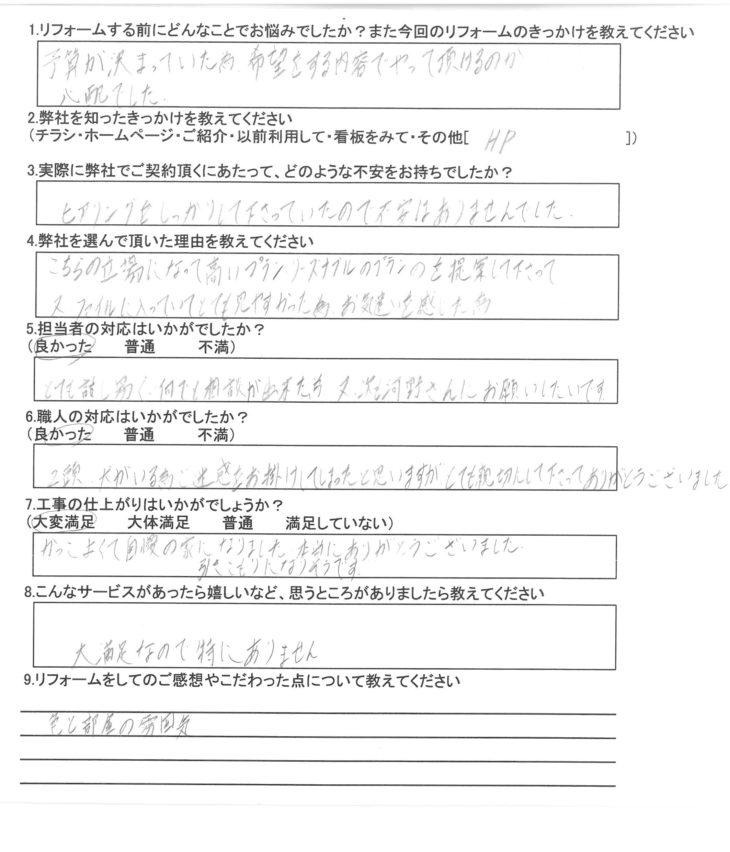 1.リフォームする前にどんなことでお悩みでしたか？また今回のリフォームのきっかけを教えてください
予算が決まっていた為、希望をする内容でやって頂けるのか
心配でした.
2.弊社を知ったきっかけを教えてください
(チラシ・ホームページ・ご紹介・以前利用して・看板をみて・その他[ HP ])
3.実際に弊社でご契約頂くにあたって、どのような不安をお持ちでしたか？
ヒアリングをしっかりして下さっていたので不安はありませんでした.
4.弊社を選んで頂いた理由を教えてください
こちらの立場になって高いプラン リーズナブルのプランのを提案して下さって
又 ファイルに入っていてとても見やすかった為、お気遣いを感じた為
5.担当者の対応はいかがでしたか？
(良かった 普通 不満)
とても話し易く、何でも相談が出来た為 又、次も河野さんにお願いしたいです
6.職人の対応はいかがでしたか？
(良かった 普通 不満)
2頭、犬がいる為ご迷惑をお掛けしてしまったと思いますがとても親切にして下さってありがとうございました
7.工事の仕上がりはいかがでしょうか？
(大変満足 大体満足 普通 満足していない)
かっこよくて自慢の家になりました 本当にありがとうございました.
引きこもりになりそうです.
8.こんなサービスがあったら嬉しいなど、思うところがありましたら教えてください
大満足なので特にありません
9.リフォームをしてのご感想やこだわった点について教えてください
色と部屋の雰囲気